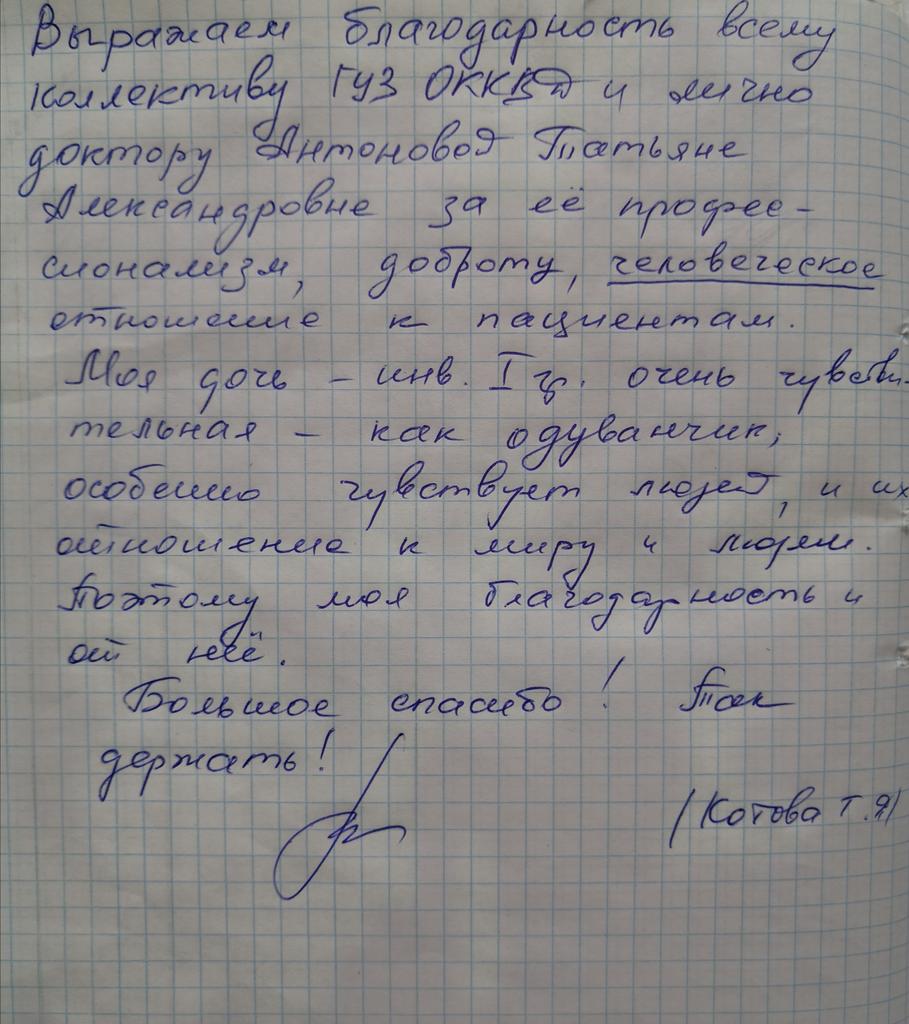 Выражаем благодарность всему
коллективу ГУЗ ОККВД и лично
доктору Антоновой Татьяне
Александровне за её профес-
сионализм, доброту, человеческое
отношение к пациентам.
Моя дочь - инв. I гр. очень чувстви-
тельная - как одуванчик;
особенно чувствует людей, и их
отношение к миру и людям.
Поэтому моя благодарность и
от неё.
Большое спасибо! Так
держать!
(Котова Т.Я)